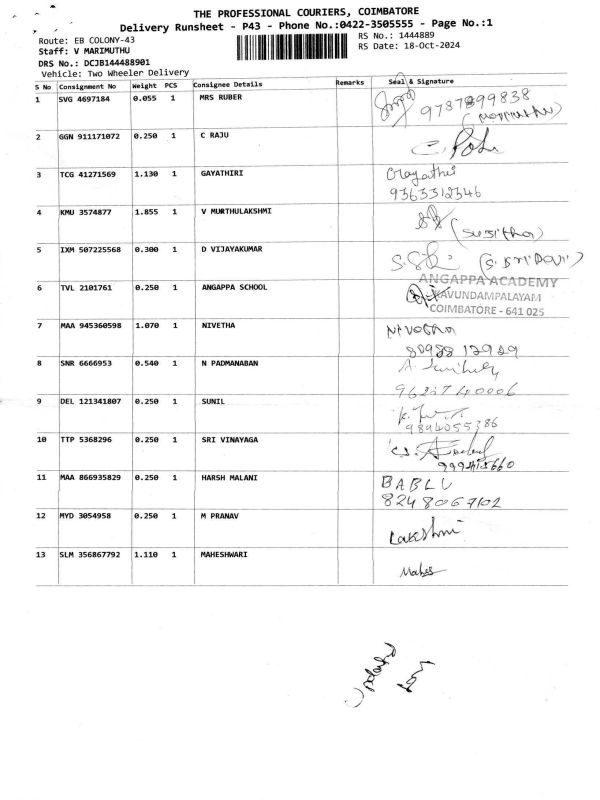 THE PROFESSIONAL COURIERS, COIMBATORE
Delivery Runsheet - P43 - Phone No.:0422-3505555 - Page No.:1
Route: EB COLONY-43
RS No.: 1444889
Staff: V MARIMUTHU
RS Date: 18-Oct-2024
DRS No.: DCJB144488901
Vehicle: Two Wheeler Delivery
S No Consignment No Weight PCS Consignee Details Remarks Seal & Signature
1 SVG 4697184 0.055 1 MRS RUBER 9787899838
2 GGN 911171072 0.250 1 C RAJU
3 TCG 41271569 1.130 1 GAYATHIRI Gayathri
9363312346
4 KMU 3574877 1.855 1 V MURTHULAKSHMI
5 IXM 507225568 0.300 1 D VIJAYKUMAR (S. SRIDEVI)
6 TVL 2101761 0.250 1 ANGAPPA SCHOOL ANGAPPA ACADEMY
KAVUNDAMPALAYAM
COIMBATORE - 641 025
7 MAA 945360598 1.070 1 NIVETHA Nivetha
8 SNR 6666953 0.540 1 N PADMANABAN
9 DEL 121341807 0.250 1 SUNIL
9894055386
10 TTP 5368296 0.250 1 SRI VINAYAGA
11 MAA 866935829 0.250 1 HARSH MALANI BABLU
8248067102
12 MYD 3054958 0.250 1 M PRANAV Lakshmi
13 SLM 356867792 1.110 1 MAHESHWARI Mahes